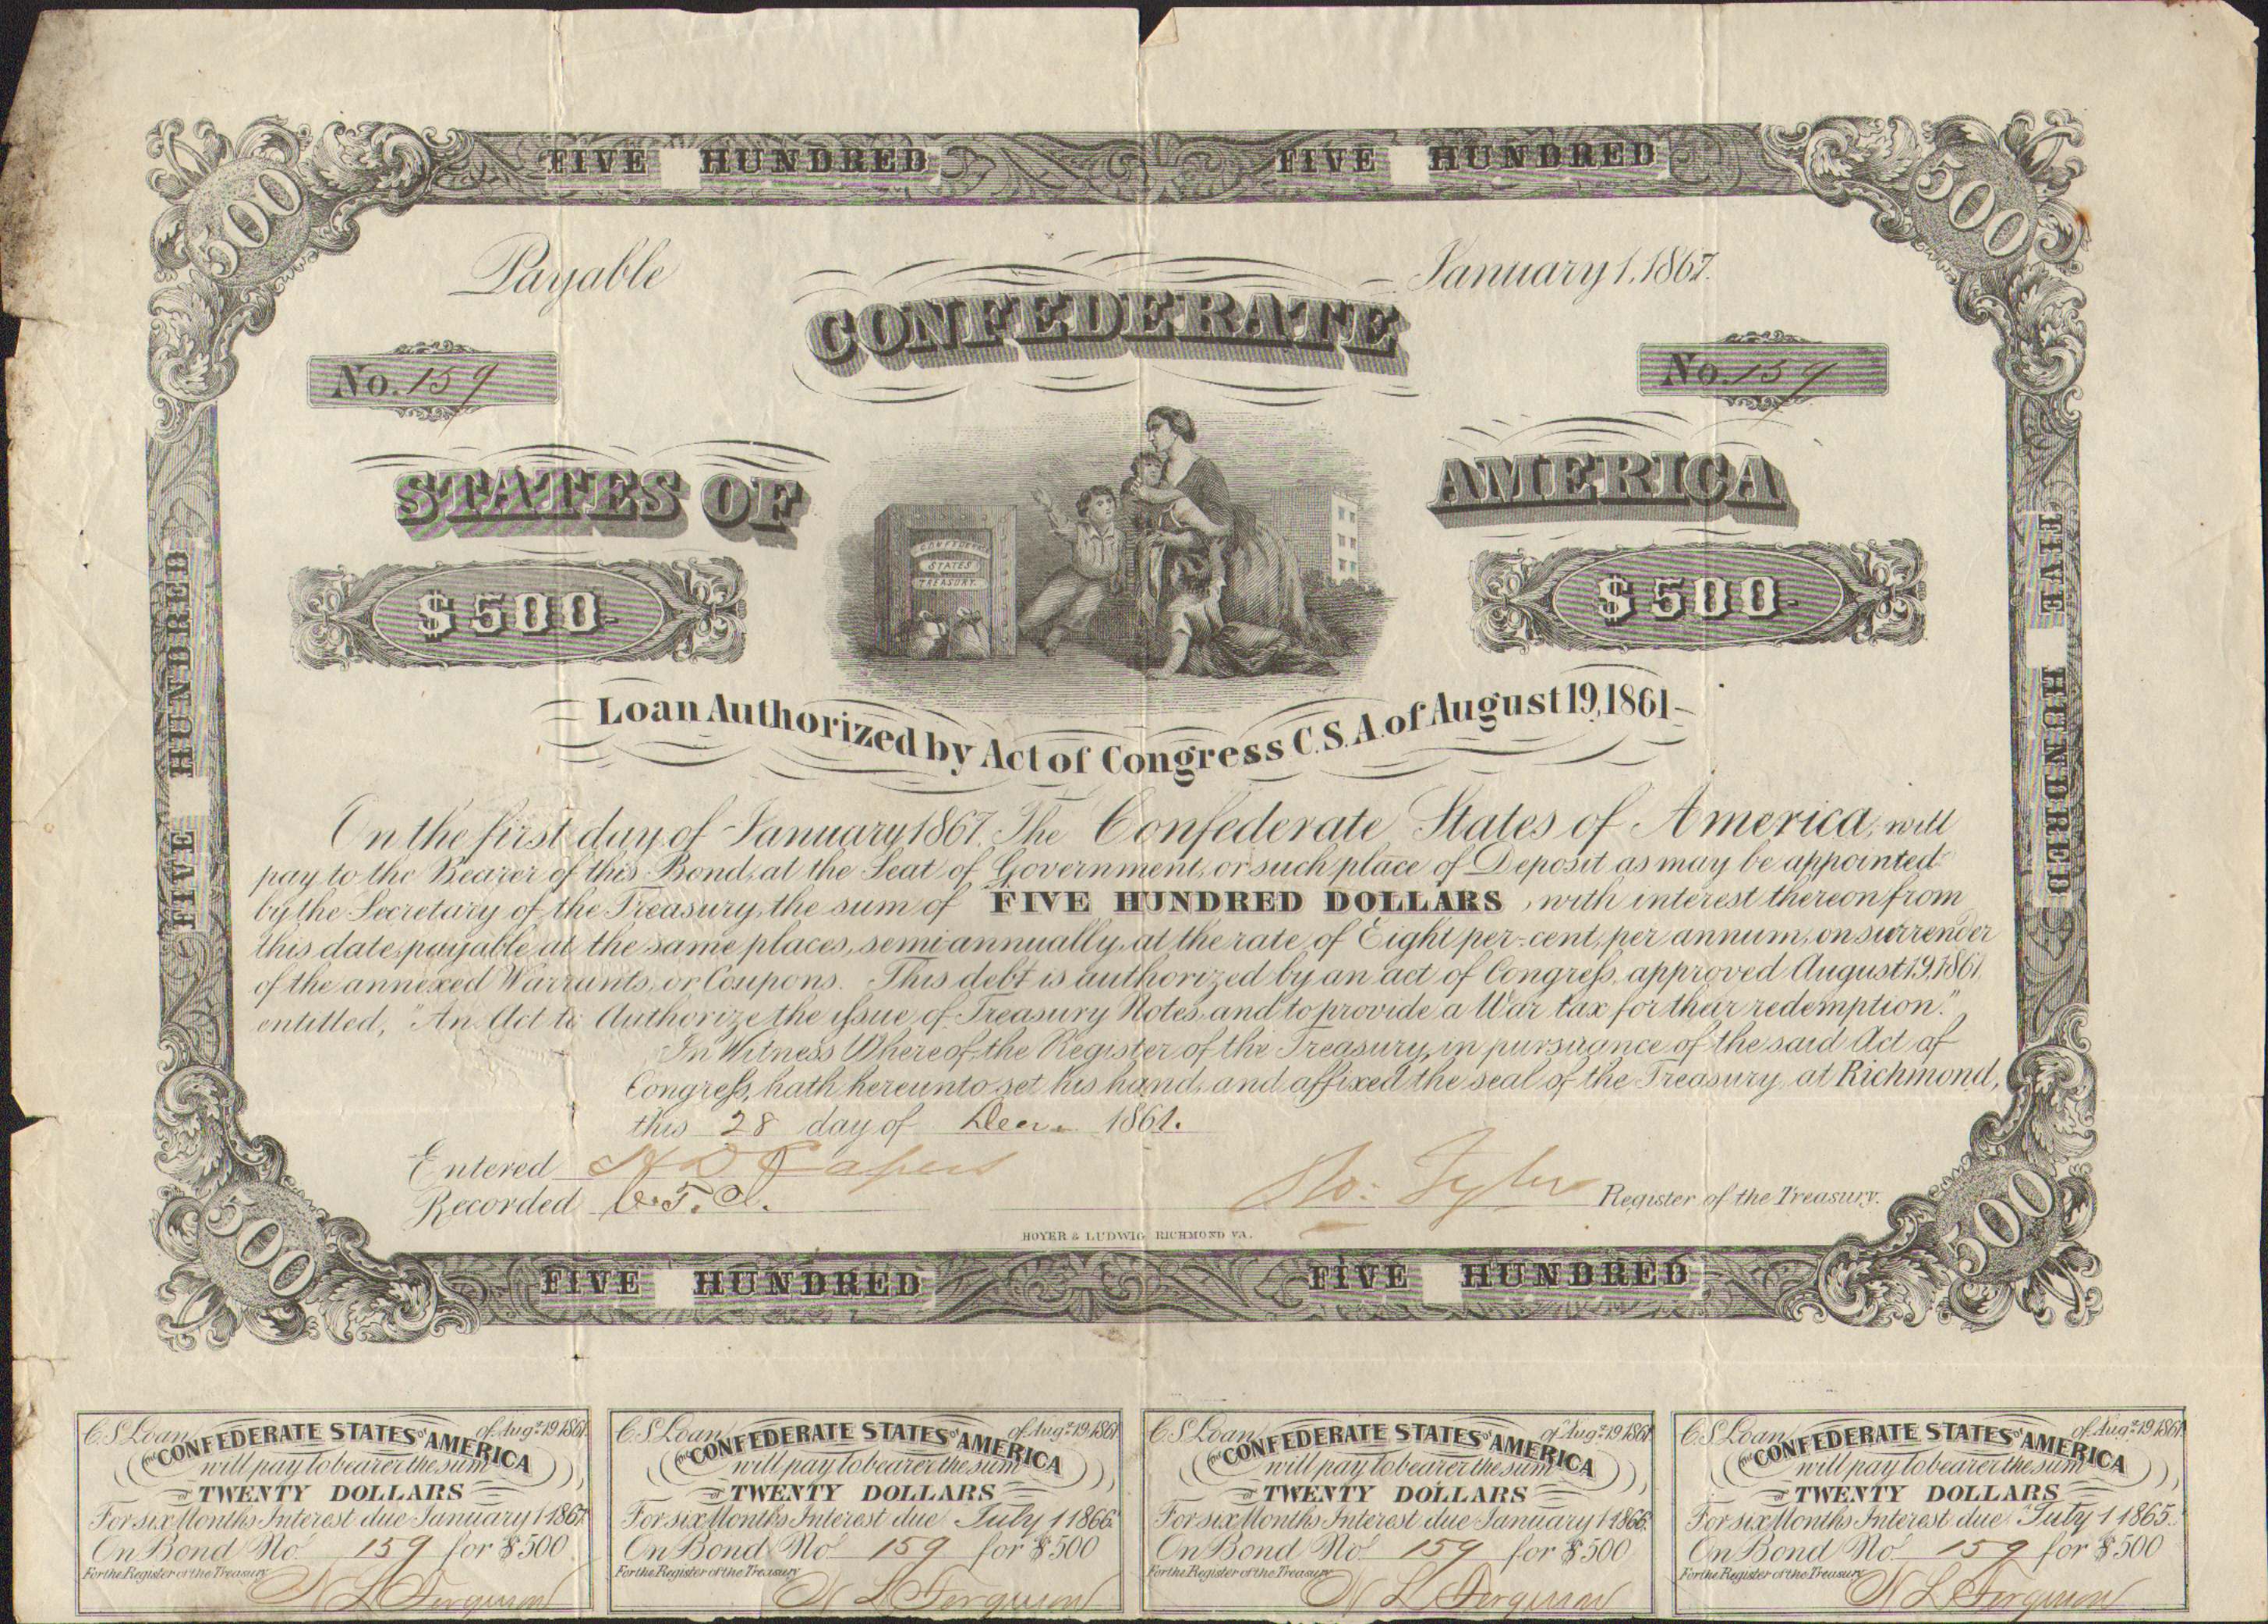 FIVE HUNDRED FIVE HUNDRED
500 500
Payable January 1, 1867.
CONFEDERATE
No. 159 No. 159
STATES OF AMERICA
CONFEDERATE
STATES
TREASURY.
$500 $500
FIVE HUNDRED
FIVE HUNDRED
Loan Authorized by Act of Congress C.S.A. of August 19, 1861
On the first day of January 1867, The Confederate States of America, will
pay to the Bearer of this Bond, at the Seat of Government, or such place of Deposit as may be appointed
by the Secretary of the Treasury, the sum of FIVE HUNDRED DOLLARS, with interest thereon from
this date, payable at the same places, semi annually, at the rate of Eight per-cent, per annum, on surrender
of the annexed Warrants, or Coupons. This debt is authorized by an act of Congress, approved August 19, 1861,
entitled, "An Act to Authorize the issue of Treasury Notes, and to provide a War tax for their redemption."
In Witness Whereof, the Register of the Treasury, in pursuance of the said Act of
Congress, hath hereunto set his hand, and affixed the seal of the Treasury, at Richmond,
this 28 day of Decr. 1861.
Entered H D Capers
Recorded C. T. A.
Ro: Tyler Register of the Treasury.
HOYER & LUDWIG, RICHMOND VA.
500 500
FIVE HUNDRED FIVE HUNDRED
C.S. Loan of Augt 19 1861
The CONFEDERATE STATES of AMERICA
will pay to bearer the sum
of TWENTY DOLLARS
For six Months Interest due January 1 1867
On Bond No. 159 for $500
For the Register of the Treasury
N L Ferguson
C.S. Loan of Augt 19 1861
The CONFEDERATE STATES of AMERICA
will pay to bearer the sum
of TWENTY DOLLARS
For six Months Interest due July 1 1866
On Bond No. 159 for $500
For the Register of the Treasury
N L Ferguson
C.S. Loan of Augt 19 1861
The CONFEDERATE STATES of AMERICA
will pay to bearer the sum
of TWENTY DOLLARS
For six Months Interest due January 1 1866
On Bond No. 159 for $500
For the Register of the Treasury
N L Ferguson
C.S. Loan of Augt 19 1861
The CONFEDERATE STATES of AMERICA
will pay to bearer the sum
of TWENTY DOLLARS
For six Months Interest due July 1 1865
On Bond No. 159 for $500
For the Register of the Treasury
N L Ferguson